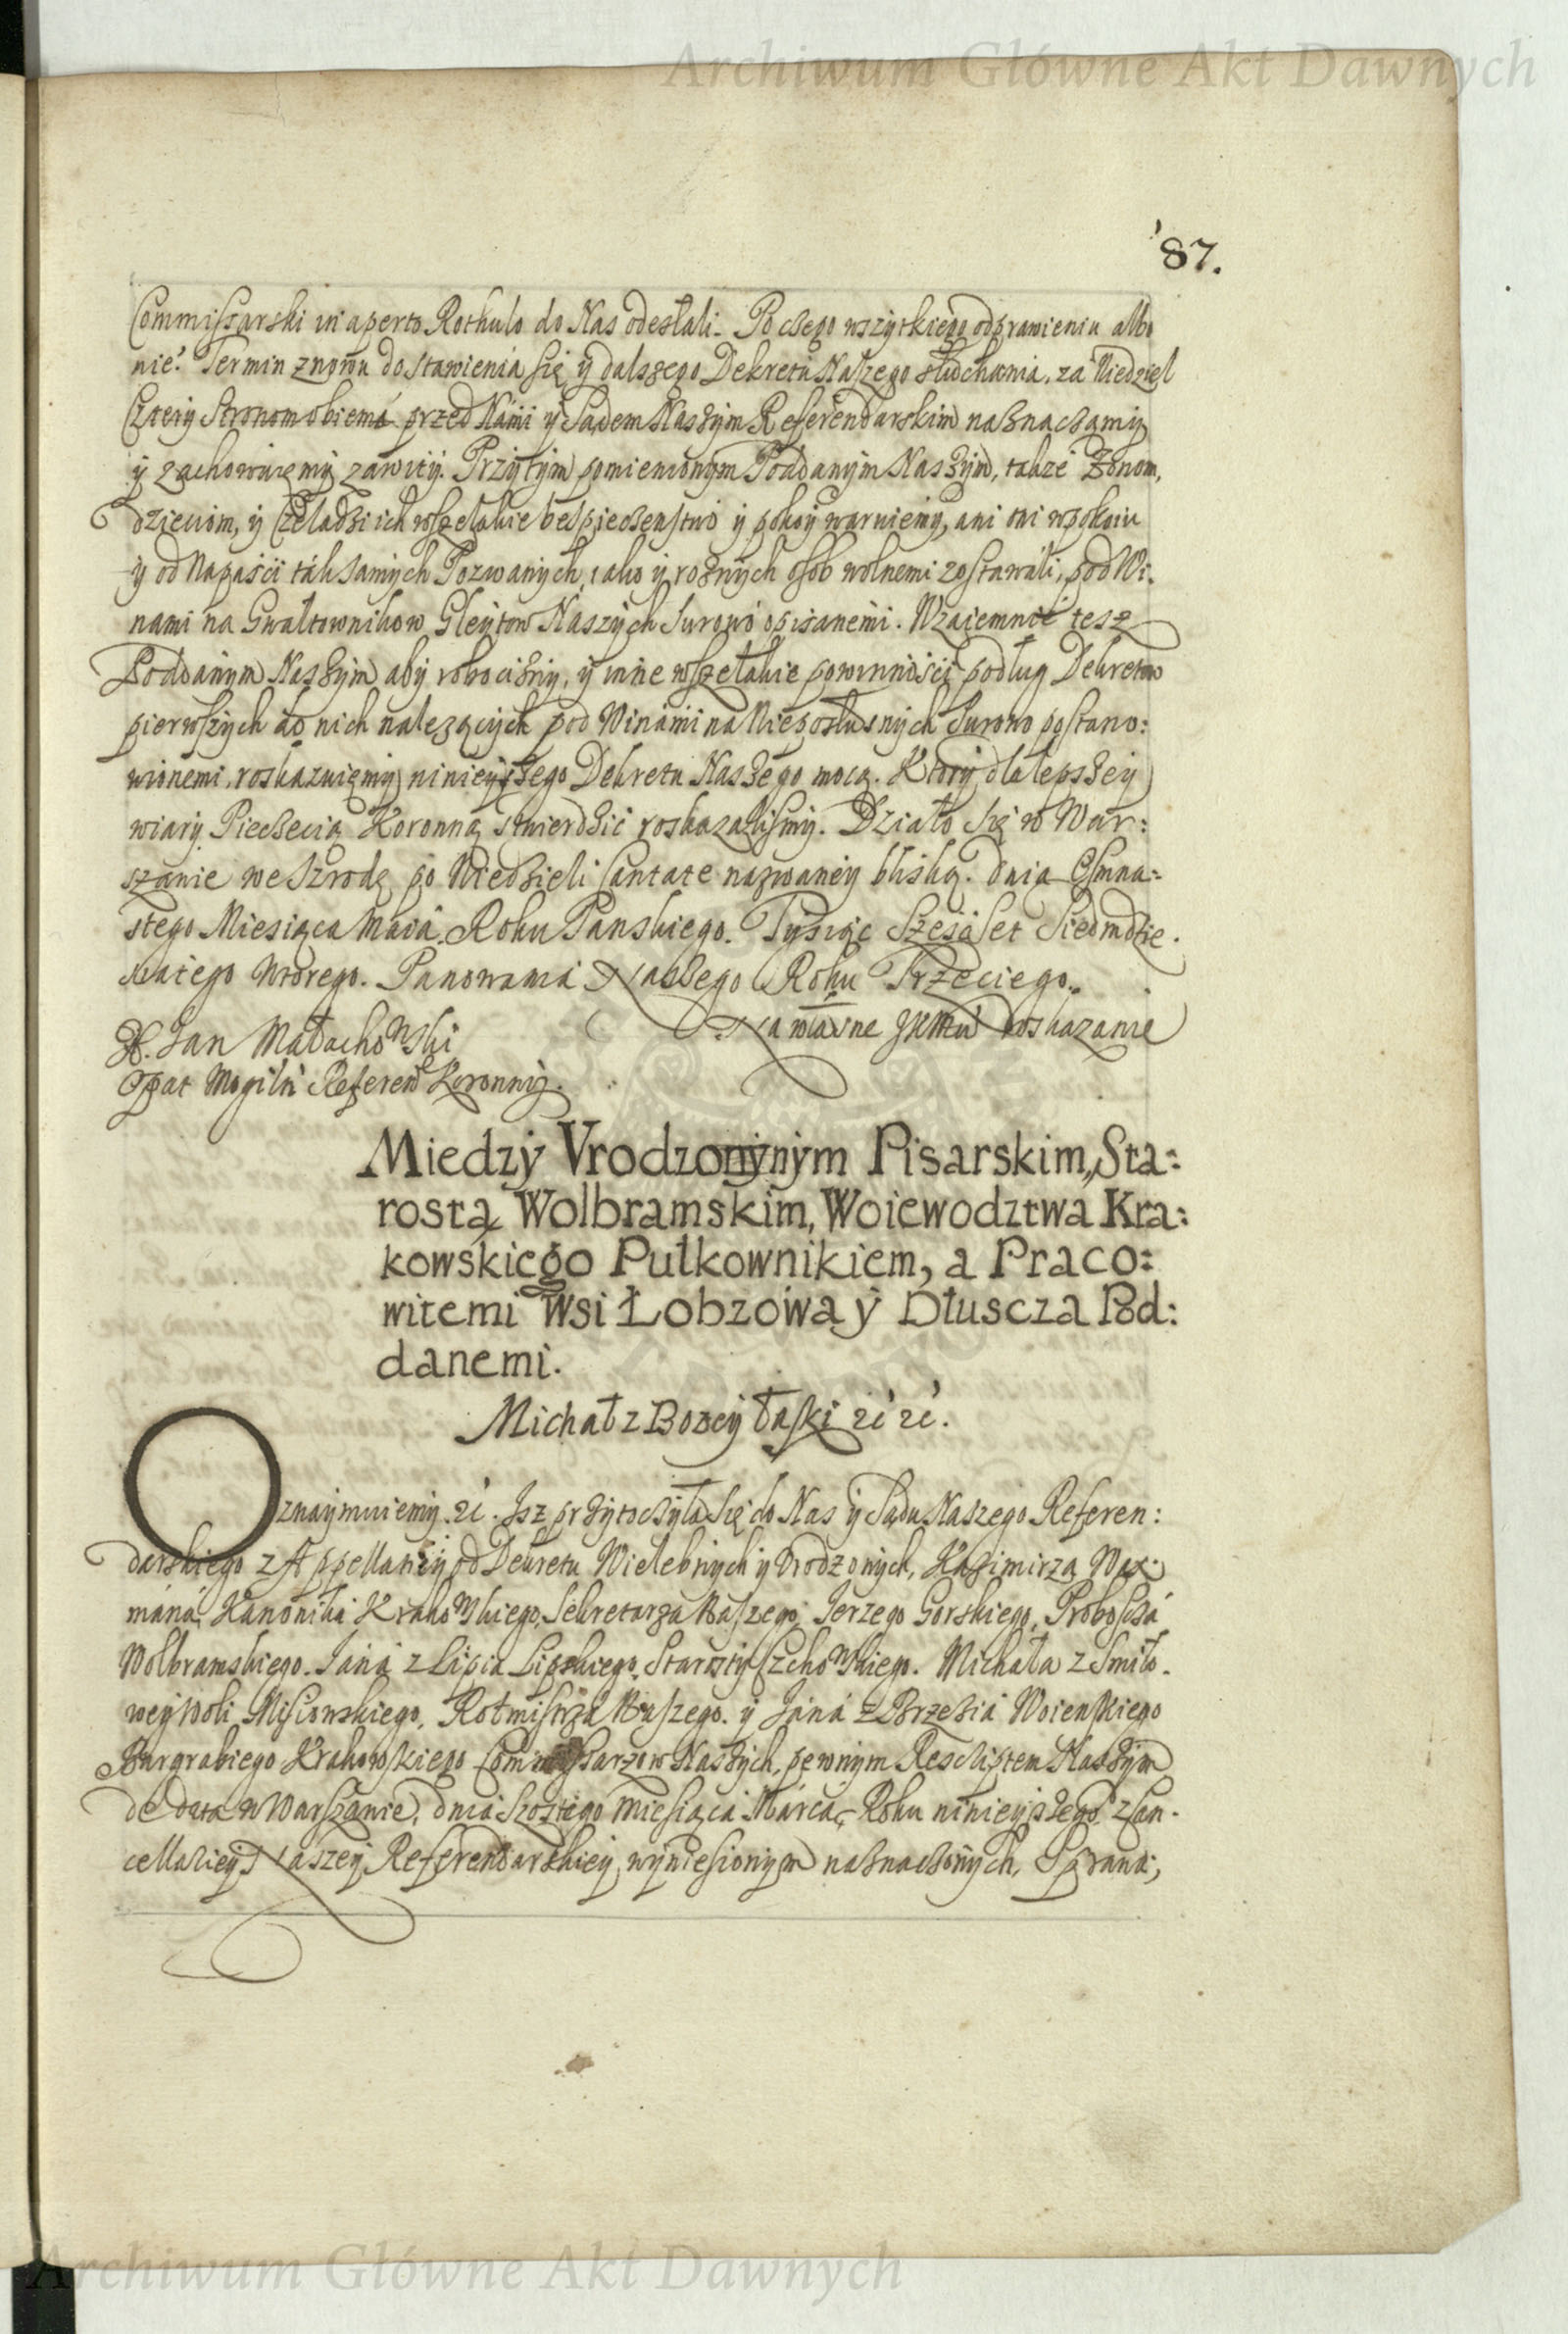 Archiwum Główne Akt Dawnych
87.
Commissarski in aperto Rothulo do Nas odesłali. Po czego wszytkiego odprawieniu albo
nie. Termin znowu do stawienia się y dalszego Dekretu Naszego słuchania, za Niedziel
Cztery Stronom obiema przed Nami y Sądem Naszym Referendarskim naznaczamy
y zachowuięmy zawity. Przytym pomienionym Poddanym Naszym, takze Zonom,
dzieciom, y Czeladzi ich wszelakie bespieczenstwo y pokoy waruiemy, ani oni w pokoiu
y od Napaści tak samych Pozwanych, iako y roznych osob wolnemi zostawali, pod Wi:
nami na Gwałtownikow Gleytow Naszych surowo opisanemi. Wzaiemnie tesz
Poddanym Naszym aby robocizny, y inne wszelakie powinności podług Dekretow
pierwszych do nich nalezących pod Winami na Nieposłusnych surowo postano:
wionemi, roskazuięmy ninieyszego Dekretu Naszego mocą. Ktory dla lepszey
wiary Pieczecią Koronną stwierdzić roskazalismy. Działo się w War:
szawie we Szrodę po Niedzieli Cantate nazwaney bliską. dnia Osmna:
stego Miesiąca Maia. Roku Panskiego. Tysiąc Szescset Siedmdzie.
siątego Wtorego. Panowania Naszego Roku Trzeciego.
X. Jan Małachowski
Na własne JKMci roskazanie
Opat Mogilni Referend Koronny.
Miedzy Vrodzonynym Pisarskim, Sta:
rostą Wolbramskim, Woiewodztwa Kra:
kowskiego Pułkownikiem, a Praco:
witemi Wsi Łobzowa y Dłuscza Pod:
danemi.
Michał z Bozey Łaski &c &c.
Oznaymuiemy &c. Isz przytoczyła się do Nas y Sądu Naszego Referen:
darskiego z Appellatiey od Dekretu Wielebnych y Vrodzonych, Kazimirza Wax:
mana Kanonika Krakowskiego, Sekretarza Naszego, Jerzego Gorskiego, Proboscza
Wolbramskiego. Jana z Lipia Lipskiego, Starosty Czchowskiego. Michała z Smiło.
wey Woli Misiowskiego, Rotmistrza Naszego. y Jana z Brzezia Woienskiego
Burgrabiego Krakowskiego Commissarzow Naszych, pewnym Rescriptem Naszym
de data w Warszawie, dnia Szostego Miesiąca Marca, Roku ninieyszego, z Can.
cellariey Naszey Referendarskiey wyniesionym naznaczonych, Sprawa,
Archiwum Główne Akt Dawnych